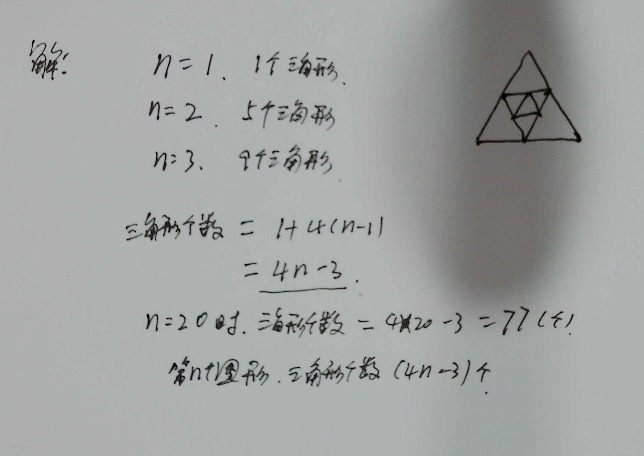 解:
n=1. 1个三角形.
n=2. 5个三角形
n=3. 9个三角形,
三角形个数 = 1+4(n-1)
= 4n-3.
n=20时. 三角形个数 = 4×20-3=77(个)
第n个图形. 三角形个数(4n-3)个